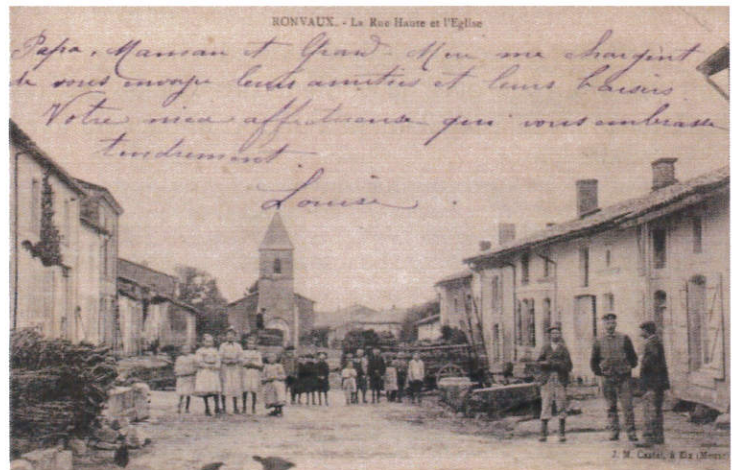 RONVAUX. - La Rue Haute et l'Eglise
Papa, Maman et Grand Mère me chargent
de vous envoyer leurs amitiés et leurs baisers
Votre nièce affectueuse qui vous embrasse
tendrement
Louise.
J. M. Castel, à Eix (Meuse)